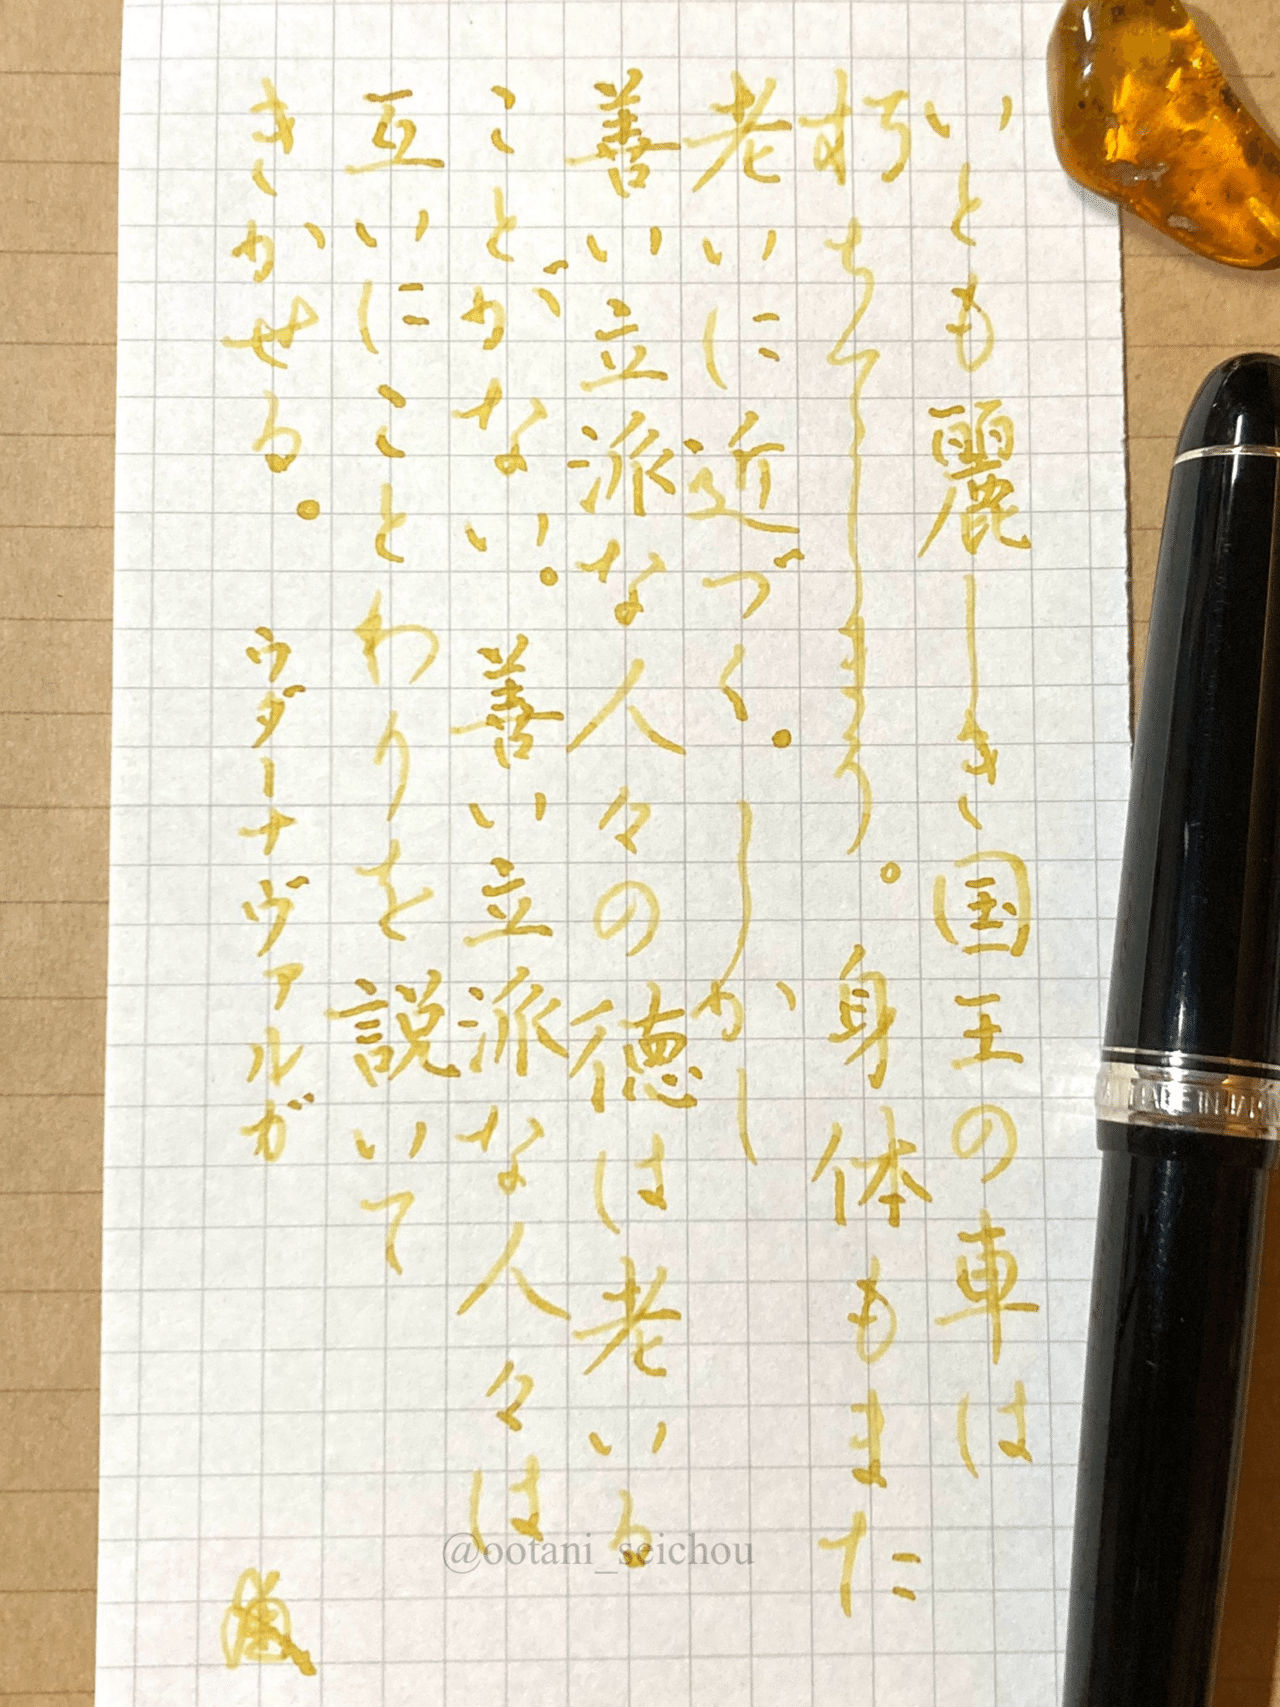 いとも麗しき国王の車は
朽ちてしまう。身体もまた
老いに近づく。しかし
善い立派な人々の徳は老いる
ことがない。善い立派な人々は
互いにことわりを説いて
きかせる。 ウダーナヴァルガ
@ootani_seichou
MADE IN JAPAN